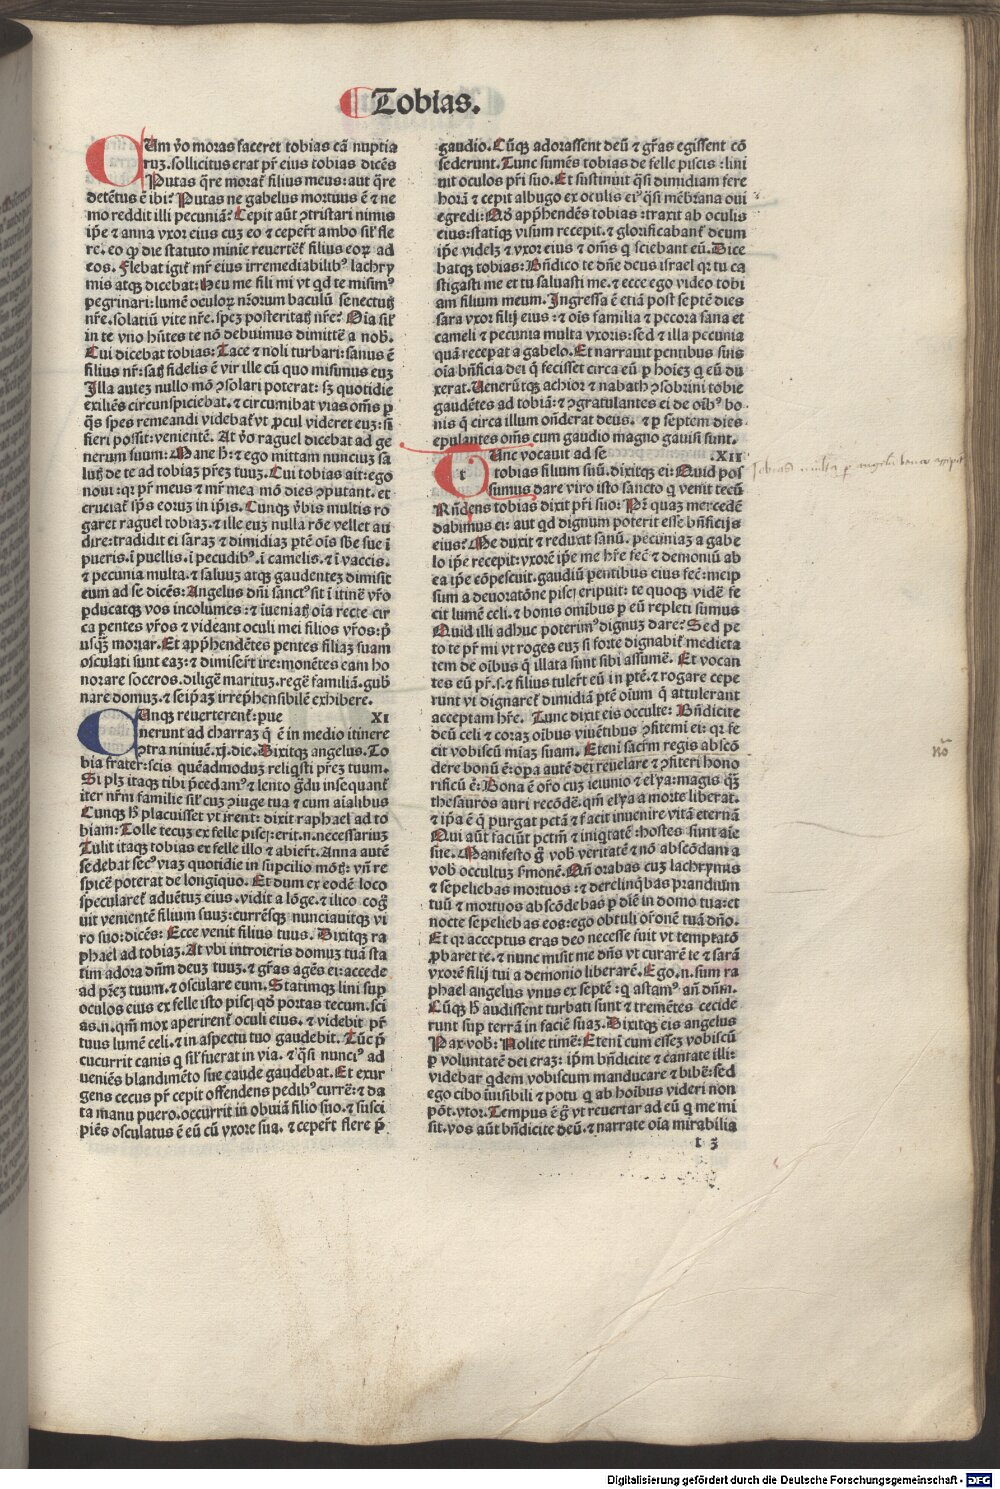 Tobias.
CUm ṽo moras faceret tobias cā nuptia
ruꝫ. sollicitus erat pr̄ eius tobias dicēs
Putas q̄re morat᷑ filius meus: aut q̄re
detētus ē ibi? Putas ne gabelus mortuus ē ⁊ ne
mo reddit illi pecuniā? Cepit aūt ꝯtristari nimis
ip̄e ⁊ anna vxor eius cuꝫ eo ⁊ ceper̄t ambo sil̄ fle
re. eo ꝙ die statuto minie reverteret᷑ filius eoꝝ ad
eos. Flebat igit᷑ mr̄ eius irremediabilibꝰ lachry
mis atqꝫ dicebat: Heu me fili mi vt qd te misimꝰ
pegrinari: lumē oculoꝝ nr̄orum baculū senectutꝭ
nr̄e. solatiū vite nr̄e. speꝫ posteritatꝭ nr̄e? Oīa sil̄
in te vno hn̄tes te nō debuimus dimittē a nob̄.
Cui dicebat tobias: Tace ⁊ noli turbari: sanus ē
filius nr̄: satꝭ fidelis ē vir ille cū quo misimus euꝫ
Illa auteꝫ nullo mō ꝯsolari poterat: sꝫ quotidie
exiliēs circunspiciebat. ⁊ circumibat vias om̄s p̄
q̄s spes remeandi videbat᷑ vt ꝓcul videret euꝫ: si
fieri possit: venientē. At ṽo raguel dicebat ad ge
nerum suum: Mane h̄: ⁊ ego mittam nunciuꝫ sa
lutꝭ de te ad tobiaꝫ pr̄eꝫ tuuꝫ. Cui tobias ait: ego
noui: qꝛ pr̄ meus ⁊ mr̄ mea mō dies ꝯputant. et
cruciat᷑ sp̄s eoruꝫ in ip̄is. Cunqꝫ v̄bis multis ro
garet raguel tobiaꝫ. ⁊ ille euꝫ nulla rōe vellet au
dire: tradidit ei saraꝫ ⁊ dimidiaꝫ ptē oīs sb̄e sue ī
pueris. ī puellis. ī pecudibꝰ. ī camelis. ⁊ ī vaccis.
⁊ pecunia multa. ⁊ saluuꝫ atqꝫ gaudenteꝫ dimisit
eum ad se dicēs: Angelus dn̄i sanctꝰ sit ī itinē vr̄o
ꝑducatqꝫ vos incolumes: ⁊ īueniatꝭ oīa recte cir
ca pentes vr̄os ⁊ videant oculi mei filios vr̄os: p̄
usqꝫ moriar. Et app̄hendētes pentes filiaꝫ suam
osculati sunt eaꝫ: ⁊ dimiser̄t ire: monētes eam ho
norare soceros. diligē marituꝫ. regē familiā. gub̄
nare domuꝫ. ⁊ seip̄aꝫ irrep̄hensibilē exhibere.
CUnqꝫ reuerterent᷑: pue XI
nerunt ad charraꝫ q̄ ē in medio itinere
ꝯtra niniuē. xj. die. Dixitqꝫ angelus. To
bia frater: scis quēadmoduꝫ reliq̄sti pr̄eꝫ tuum.
Si plꝫ itaqꝫ tibi p̄cedamꝰ ⁊ lento g̃du insequant᷑
iter nr̄m familie sil̄ cuꝫ ꝯiuge tua ⁊ cum aīalibus
Cunqꝫ h̄ placuisset vt irent: dixit raphael ad to
biam: Tolle tecuꝫ ex felle piscꝭ: erit. n. necessariuꝫ
Tulit itaqꝫ tobias ex felle illo ⁊ abier̄t. Anna autē
sedebat secꝰ viaꝫ quotidie in sup̄cilio mōtꝭ: vn̄ re
spicē poterat de longiquo. Et dum ex eodē loco
specularet᷑ aduētuꝫ eius. vidit a lōge. ⁊ ilico cog̃
uit venientē filium suuꝫ: currēsqꝫ nunciauitqꝫ vi
ro suo: dicēs: Ecce venit filius tuus. Dixitqꝫ ra
phael ad tobiaꝫ. At vbi introieris domuꝫ tuā sta
tim adora dn̄m deuꝫ tuuꝫ. ⁊ gr̄as agēs ei: accede
ad pr̄eꝫ tuum. ⁊ osculare eum. Statimqꝫ lini sup
oculos eius ex felle isto piscꝭ qd̄ portas tecum. sci
as. n. qm̄ mox aperirent᷑ oculi eius. ⁊ videbit pr̄
tuus lumē celi. ⁊ in aspectu tuo gaudebit. Tūc p̄
cucurrit canis q̄ sil̄ fuerat in via. ⁊ q̄si nunciꝰ ad
ueniēs blandimēto sue caude gaudebat. Et exur
gens cecus pr̄ cepit offendens pedibꝰ currē: ⁊ da
ta manu puero. occurrit in obuiā filio suo. ⁊ susci
piēs osculatus ē eū cū vxore sua. ⁊ ceper̄t flere p̄
gaudio. Cūqꝫ adorassent deū ⁊ gr̄as egissent cō
sederunt. Tunc sumēs tobias de felle piscis: lini
uit oculos pr̄i suo. Et sustinuit q̄si dimidiam fere
horā ⁊ cepit albugo ex oculis eiꝰ q̄si mēbrana oui
egredi: Qd̄ app̄hendēs tobias: traxit ab oculis
eius: statiqꝫ visum recepit. ⁊ glorificabant᷑ deum
ip̄e videlꝫ ⁊ vxor eius ⁊ om̄s q̄ sciebant eū. Dice
batqꝫ tobias: Bn̄dico te dn̄e deus israel qꝛ tu ca
stigasti me et tu saluasti me. ⁊ ecce ego video tobi
am filium meum. Ingressa ē etiā post septē dies
sara vxor filij eius: ⁊ oīs familia ⁊ pecora sana et
cameli ⁊ pecunia multa vxoris: sed ⁊ illa pecunia
quā recepat a gabelo. Et narrauit pentibus suis
oīa bn̄ficia dei q̄ fecisset circa eū ꝑ hoieꝫ q̄ eū du
xerat. Ueneruntqꝫ achior ⁊ nabath ꝯsobrini tobie
gaudētes ad tobiā: ⁊ ꝯgratulantes ei de oībꝰ bo
nis q̄ circa illum on̄derat deus. ⁊ ꝑ septem dies
epulantes om̄s cum gaudio magno gauisi sunt.
TUnc vocauit ad se .XII
tobias filium suū. dixitqꝫ ei: Quid pos
sumus dare viro isto sancto q̄ venit tecū
Rn̄dens tobias dixit pr̄i suo: Pr̄ quaꝫ mercedē
dabimus ei: aut qd dignum poterit esse bn̄ficijs
eius? Me duxit ⁊ reduxit sanū. pecuniaꝫ a gabe
lo ip̄e recepit: vxorē ip̄e me hr̄e fec̄ ⁊ demoniū ab
ea ip̄e cōpescuit. gaudiū pentibus eius fec̄: meip
sum a deuoratōne piscꝭ eripuit: te quoqꝫ vidē fe
cit lumē celi. ⁊ bonis omibus ꝑ eū repleti sumus
Quid illi adhuc poterimꝰ dignuꝫ dare? Sed pe
to te pr̄ mi vt roges euꝫ si forte dignabit᷑ medieta
tem de oībus q̄ illata sunt sibi assumē. Et vocan
tes eū pr̄. s. ⁊ filius tuler̄t eū in ptē. ⁊ rogare cepe
runt vt dignaret᷑ dimidiā ptē oīum q̄ attulerant
acceptam hr̄e. Tunc dixit eis occulte: Bn̄dicite
deū celi ⁊ coraꝫ oībus viuētibus ꝯfitemi ei: qꝛ fe
cit vobiscū mīaꝫ suam. Eteni sacr̄m regis abscō
dere bonū ē: opa autē dei reuelare ⁊ ꝯfiteri hono
rificū ē: Bona ē or̄o cuꝫ ieiunio ⁊ elya: magis q̄ꝫ
thesauros auri recōdē. qm̄ elya a morte liberat.
⁊ ip̄a ē q̄ purgat pctā ⁊ facit inuenire vitā eternā
Qui aūt faciūt pctm̄ ⁊ iniqtatē: hostes sunt aīe
sue. Manifesto g̃ vob̄ veritatē ⁊ nō abscōdam a
vob̄ occultuꝫ s̄monē. Qn̄ orabas cuꝫ lachrymis
⁊ sepeliebas mortuos: ⁊ derelinq̄bas prandium
tuū ⁊ mortuos abscōdebas ꝑ diē in domo tua: et
nocte sepeliebas eos: ego obtuli or̄onē tuā dn̄o.
Et qꝛ acceptus eras deo necesse fuit vt temptatō
ꝓbaret te. ⁊ nunc misit me dn̄s vt curarē te ⁊ sarā
vxorē filij tui a demonio liberarē. Ego. n. sum ra
phael angelus vnus ex septē: q̄ astamꝰ an̄ dn̄m.
Cūqꝫ h̄ audissent turbati sunt ⁊ tremētes cecide
runt sup terrā in faciē suaꝫ. Dixitqꝫ eis angelus
Pax vob̄: Nolite timē: Etenī cum esseꝫ vobiscū
ꝑ voluntatē dei eraꝫ: ip̄m bn̄dicite ⁊ cantate illi:
videbar qdem vobiscum manducare ⁊ bibē: sed
ego cibo īuisibili ⁊ potu q̄ ab hoībus videri non
pōt. vtor. Tempus ē g̃ vt reuertar ad eū q̄ me mi
sit. vos aūt bn̄dicite deū. ⁊ narrate oīa mirabilia
l 3
nō
Digitalisierung gefördert durch die Deutsche Forschungsgemeinschaft - DFG